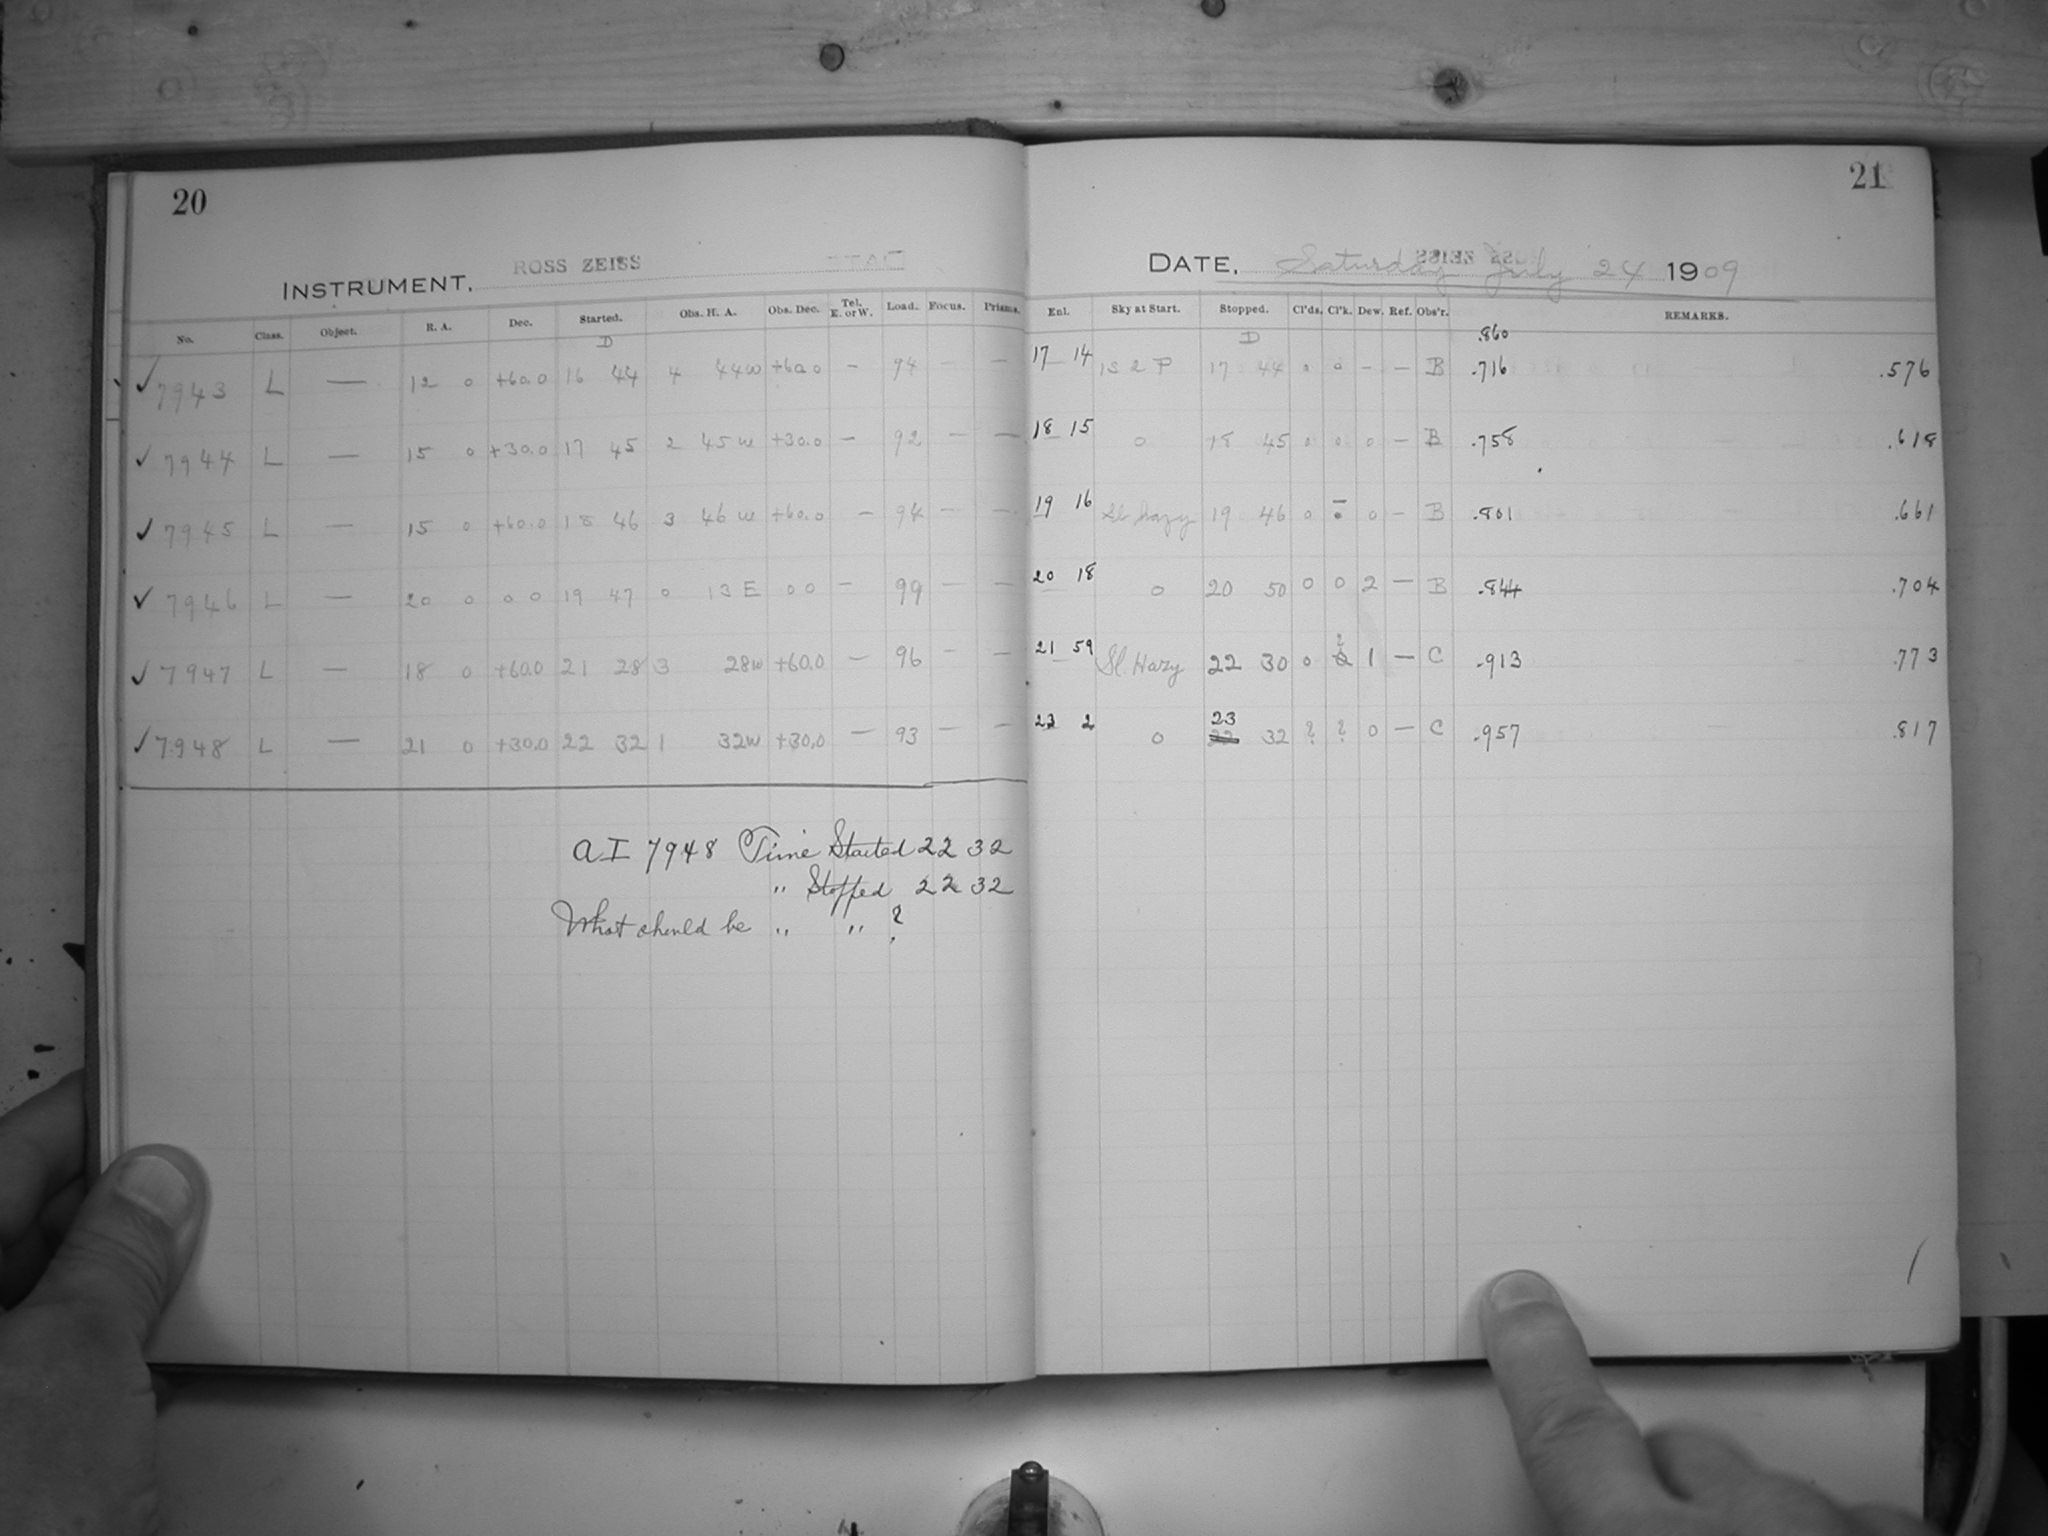 20
INSTRUMENT, ROSS ZEISS
No. Class. Object. R. A. Dec. Started. Obs. H. A. Obs. Dec. Tel. E. or W. Load. Focus. Prisms.
D
✓ 7943 L — 12 0 +60.0 16 44 4 44W +60.0 — 94 — —
✓ 7944 L — 15 0 +30.0 17 45 2 45W +30.0 — 92 — —
✓ 7945 L — 15 0 +60.0 18 46 3 46W +60.0 — 94 — —
✓ 7946 L — 20 0 0 0 19 47 0 13E 0 0 — 99 — —
✓ 7947 L — 18 0 +60.0 21 28 3 28W +60.0 — 96 — —
✓ 7948 L — 21 0 +30.0 22 32 1 32W +30.0 — 93 — —
AI 7948 Time Started 22 32
" Stopped 22 32
What should be " " ?
21
DATE, Saturday July 24 1909
Enl. Sky at Start. Stopped. Cl'ds. Cl'k. Dew. Ref. Obs'r. REMARKS.
D .860
17 14 1S 2 P 17 44 0 0 — — B .716 .576
18 15 0 18 45 0 0 0 — B .758 .618
19 16 Sl. hazy 19 46 0 0 — B .801 .661
20 18 0 20 50 0 0 2 — B .844 .704
21 59 Sl. Hazy 22 30 0 2 1 — C .913 .773
23
23 2 0 22 32 ? ? 0 — C .957 .817